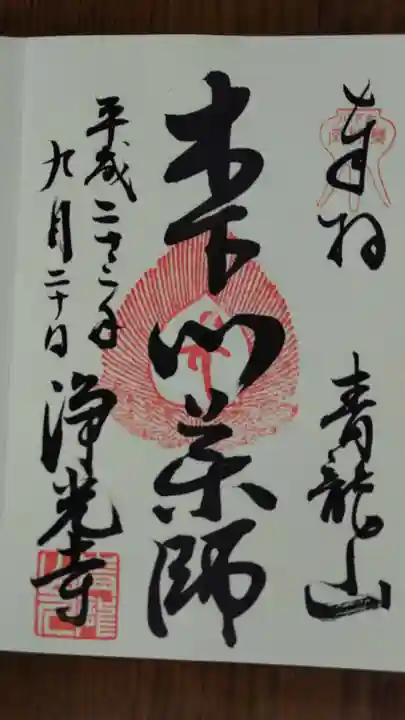 奉拝
青龍山
木下川薬師
平成二十二年
九月二十日
浄光寺